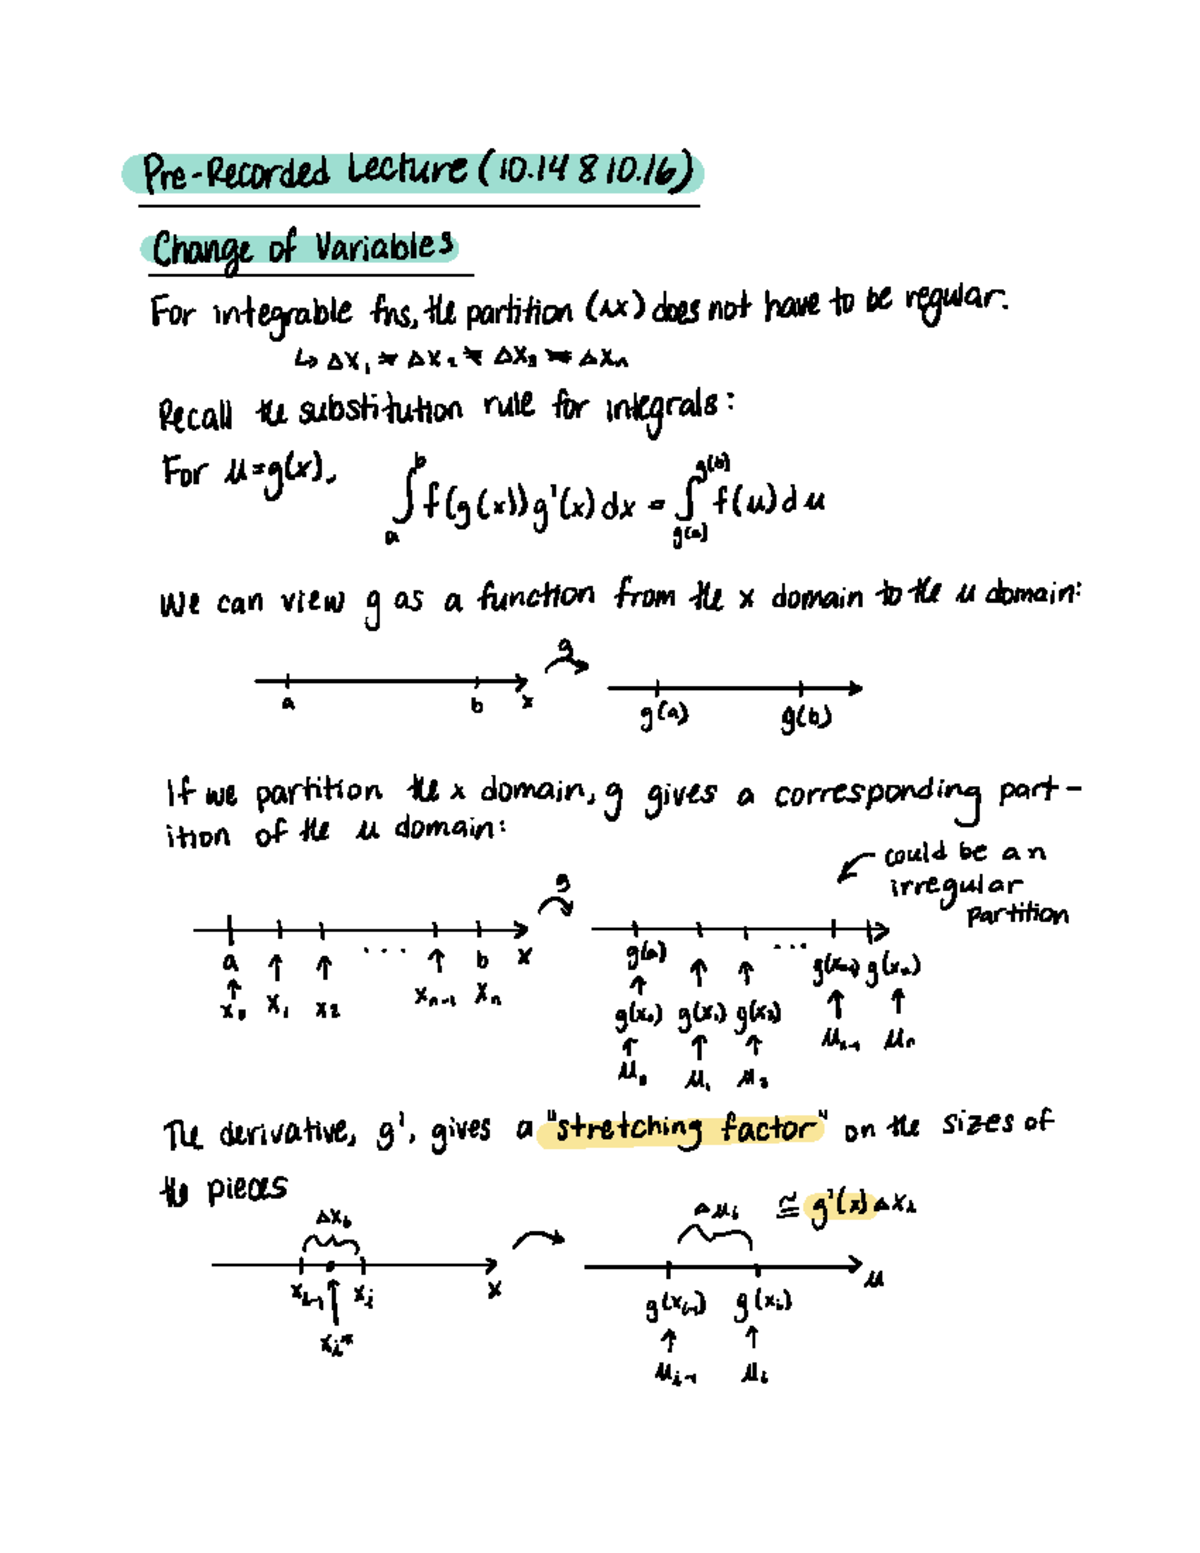 Pre-Recorded Lecture (10.14 & 10.16)
Change of Variables
For integrable fns, the partition (Δx) does not have to be regular.
↳ Δx₁ ≠ Δx₂ ≠ Δx₃ ≠ Δxₙ
Recall the substitution rule for integrals:
For u=g(x), ∫ₐᵇ f(g(x))g'(x)dx = ∫_{g(a)}^{g(b)} f(u)du
We can view g as a function from the x domain to the u domain:
g
a b x g(a) g(b)
If we partition the x domain, g gives a corresponding part-
ition of the u domain:
could be an
irregular
partition
g
a ↑ ↑ ... ↑ b x g(a) ↑ ↑ ... g(xₙ₋₁) g(xₙ)
↑ ↑ ↑ ↑
x₀ x₁ x₂ xₙ₋₁ xₙ g(x₀) g(x₁) g(x₂) uₙ₋₁ uₙ
↑ ↑ ↑
u₀ u₁ u₂
The derivative, g', gives a "stretching factor" on the sizes of
the pieces
Δxᵢ Δuᵢ ≅ g'(x)Δxᵢ
x u
xᵢ₋₁ ↑ xᵢ g(xᵢ₋₁) g(xᵢ)
xᵢ* ↑ ↑
uᵢ₋₁ uᵢ